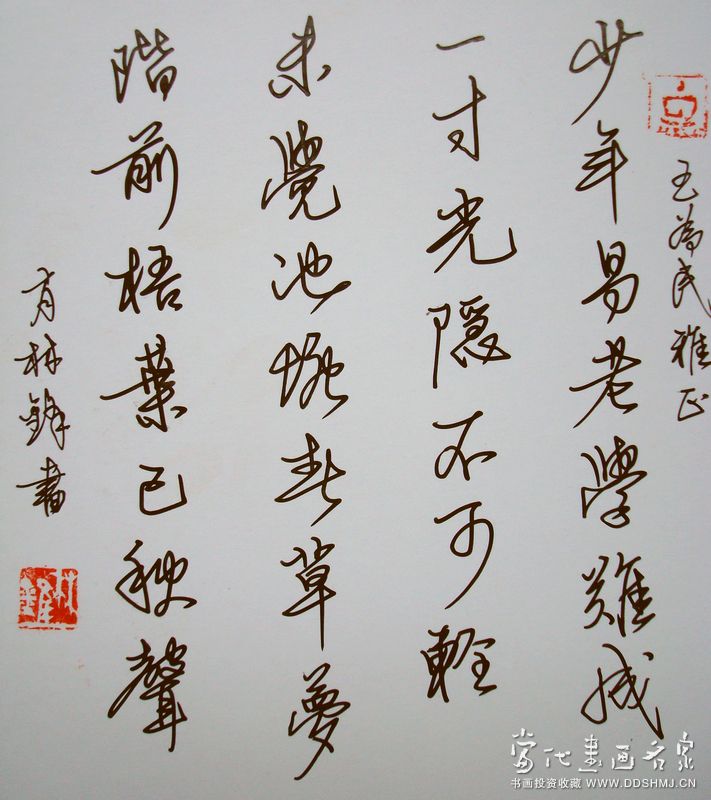 王為民雅正
少年易老學難成
一寸光隱不可輕
未覺池塘春草夢
階前梧葉已秋聲
肖林鋒書
當代書畫名家
书画投资收藏 WWW.DDSHMJ.CN